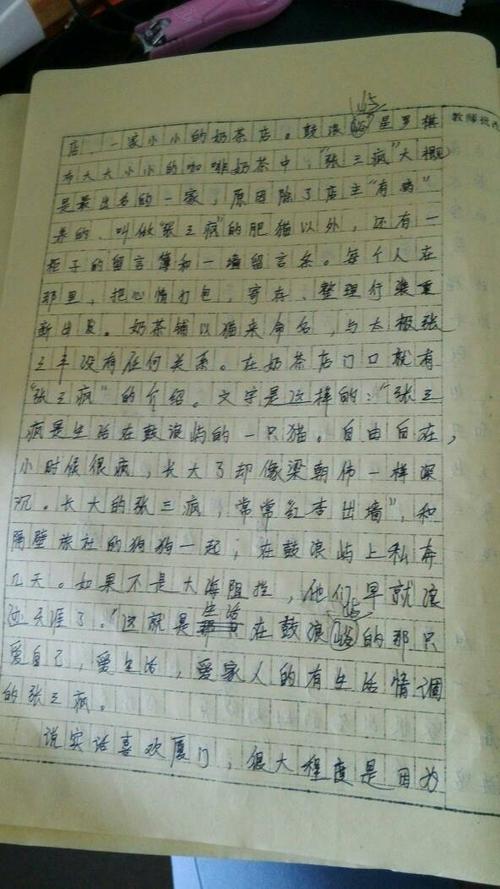 屿
教师批
店，一家小小的奶茶店。鼓浪屿星罗棋
布大大小小的咖啡奶茶中，"张三疯"大概
是最出名的一家，原因除了店主"有病"
养的、叫做"张三疯"的肥猫以外，还有一
柜子的留言簿和一墙留言条。每个人在
那里，把心情打包，寄存，整理行装重
新出发。奶茶铺以猫来命名，与太极张
三丰没有任何关系。在奶茶店门口就有
"张三疯"的介绍。文字是这样的："张三
疯是生活在鼓浪屿的一只猫。自由自在，
小时候很疯，长大了却像梁朝伟一样深
沉。长大的张三疯，常常"红杏出墙"，和
隔壁旅社的狗狗一起，在鼓浪屿上私奔
几天。如果不是大海阻拦，他们早就浪
迹天涯了。"这就是生活在鼓浪屿的那只
爱自己，爱生活，爱家人的有生活情调
的张三疯。
说实话喜欢厦门，很大程度是因为